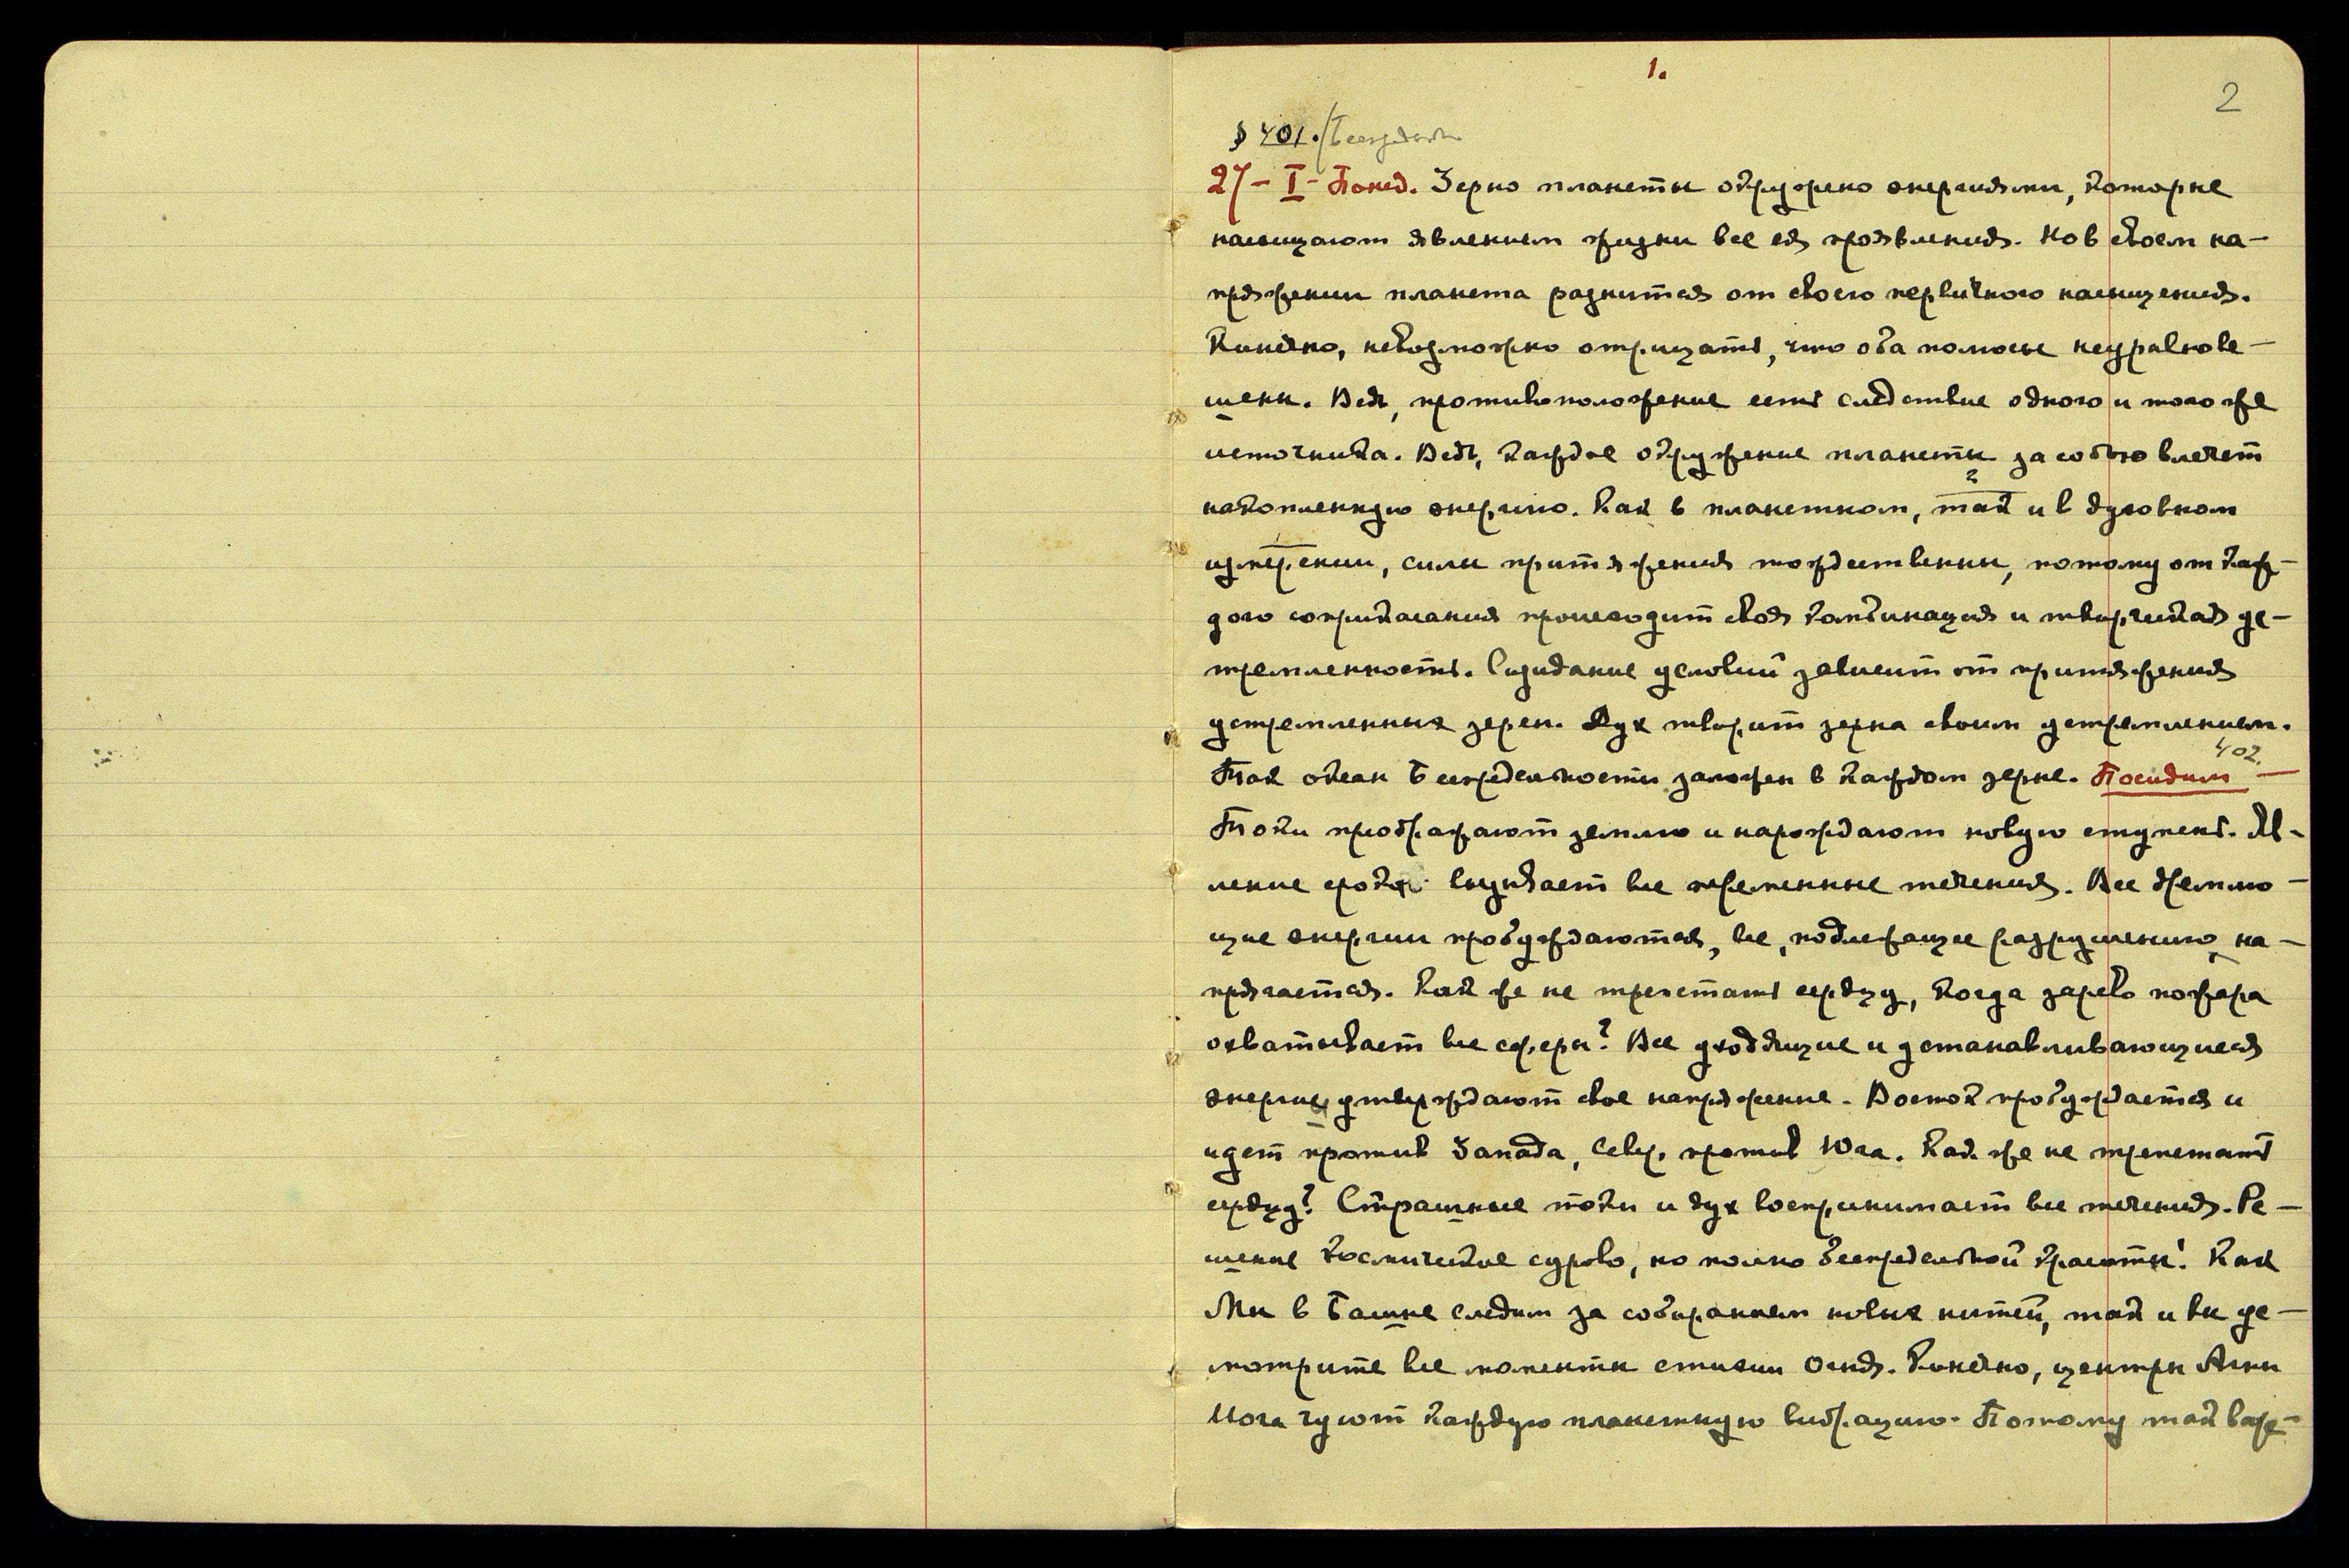 1.
2
§ 401. /Беспредельн
27 – I – Понед. Зерно планеты окружено энергиями, которые
насыщают явлением жизни все ея проявления. Но в своем на–
пряжении планета разнится от своего первичного насыщения.
Конечно, невозможно отрицать, что оба полюсы неуравнове–
шены. Ведь, противоположение есть следствие одного и того же
источника. Ведь, каждое окружение планеты за собою влечет
накопленную энергию. Как в планетном, так и в духовном
измерении, силы притяжения тождественны, потому от каж–
дого соприкасания происходит своя комбинация и творческая ус–
тремленность. Созидание условий зависит от притяжения
устремленных зерен. Дух творит зерна своим устремлением.
402.
Так океан Беспредельности заложен в каждом зерне. Посидим —
Токи преображают землю и нарождают новую ступень. Яв–
ление срока вызывает все временные течения. Все дремлю–
щие энергии пробуждаются, все, подлежащее разрушению, на–
прягается. Как же не трепетать сердцу, когда зарево пожара
охватывает все сферы? Все уходящие и устанавливающиеся
энергии утверждают свое напряжение. Восток пробуждается и
идет против Запада, Север против Юга. Как же не трепетать
сердцу? Страшные токи и дух воспринимает все течения. Ре–
шение космическое сурово, но полно беспредельной красоты! Как
Мы в Башне следим за собиранием новых нитей, так и вы ус–
мотрите все моменты стихии Огня. Конечно, центры Агни
Йога чуют каждую планетную вибрацию. Потому так важ–